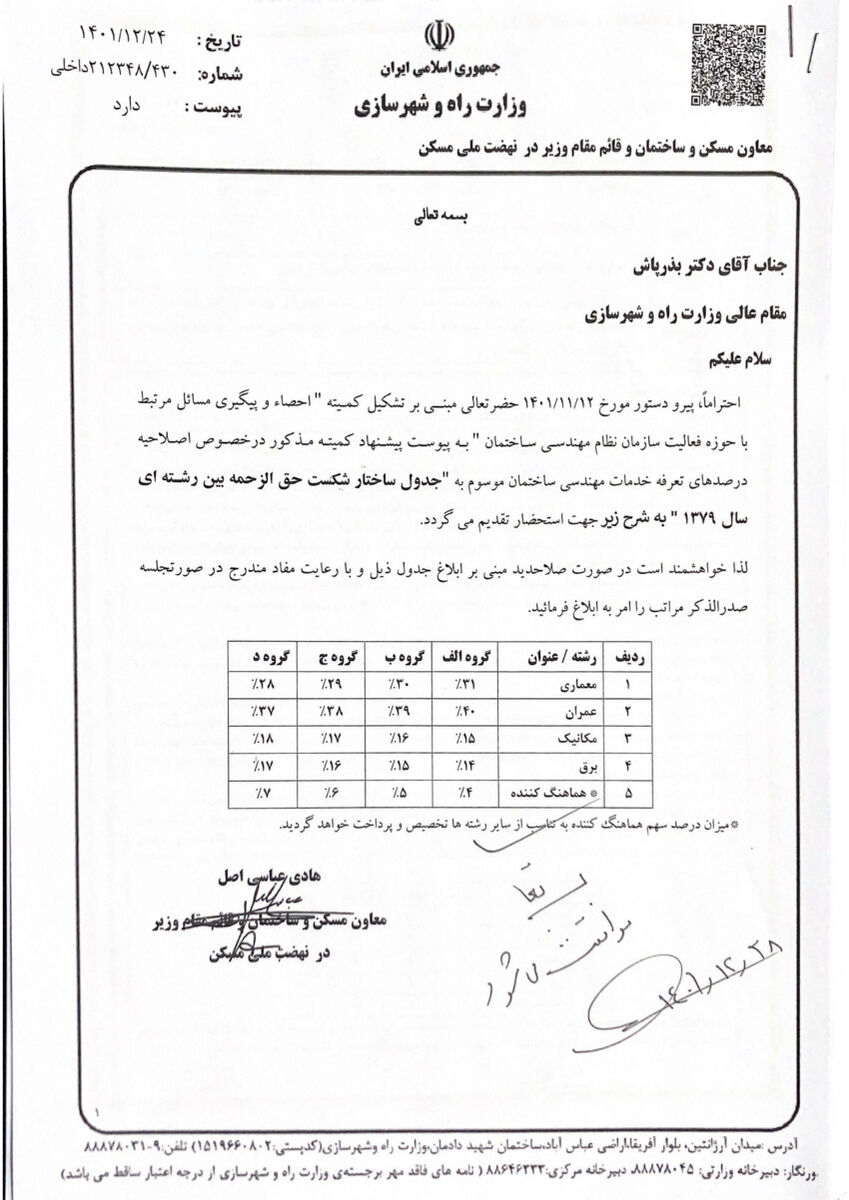 جمهوری اسلامی ایران
وزارت راه و شهرسازی
معاون مسکن و ساختمان و قائم مقام وزیر در نهضت ملی مسکن
تاریخ : ۱۴۰۱/۱۲/۲۴
شماره: ۲۱۲۳۴۸/۴۳۰داخلی
پیوست : دارد
بسمه تعالی
جناب آقای دکتر بذرپاش
مقام عالی وزارت راه و شهرسازی
سلام علیکم
احتراماً، پیرو دستور مورخ ۱۴۰۱/۱۱/۱۲ حضرتعالی مبنی بر تشکیل کمیته " احصاء و پیگیری مسائل مرتبط
با حوزه فعالیت سازمان نظام مهندسی ساختمان " به پیوست پیشنهاد کمیته مذکور درخصوص اصلاحیه
درصدهای تعرفه خدمات مهندسی ساختمان موسوم به "جدول ساختار شکست حق الزحمه بین رشته ای
سال ۱۳۷۹ " به شرح زیر جهت استحضار تقدیم می گردد.
لذا خواهشمند است در صورت صلاحدید مبنی بر ابلاغ جدول ذیل و با رعایت مفاد مندرج در صورتجلسه
صدرالذکر مراتب را امر به ابلاغ فرمائید.
ردیف رشته / عنوان گروه الف گروه ب گروه ج گروه د
۱ معماری ٪۳۱ ٪۳۰ ٪۲۹ ٪۲۸
۲ عمران ٪۴۰ ٪۳۹ ٪۳۸ ٪۳۷
۳ مکانیک ٪۱۵ ٪۱۶ ٪۱۷ ٪۱۸
۴ برق ٪۱۴ ٪۱۵ ٪۱۶ ٪۱۷
۵ * هماهنگ کننده ٪۴ ٪۵ ٪۶ ٪۷
*میزان درصد سهم هماهنگ کننده به تناسب از سایر رشته ها تخصیص و پرداخت خواهد گردید.
هادی عباسی اصل
معاون مسکن و ساختمان و قائم مقام وزیر
در نهضت ملی مسکن
۱۴۰۱/۱۲/۲۸
۱
آدرس :میدان آرژانتین، بلوار آفریقا،اراضی عباس آباد،ساختمان شهید دادمان،وزارت راه وشهرسازی(کدپستی:۱۵۱۹۶۶۰۸۰۲) تلفن:۹-۸۸۸۷۸۰۳۱
ورنگار: دبیرخانه وزارتی: ۸۸۸۷۸۰۴۵، دبیرخانه مرکزی:۸۸۶۴۶۳۳۳ ( نامه های فاقد مهر برجسته‌ی وزارت راه و شهرسازی از درجه اعتبار ساقط می باشد)